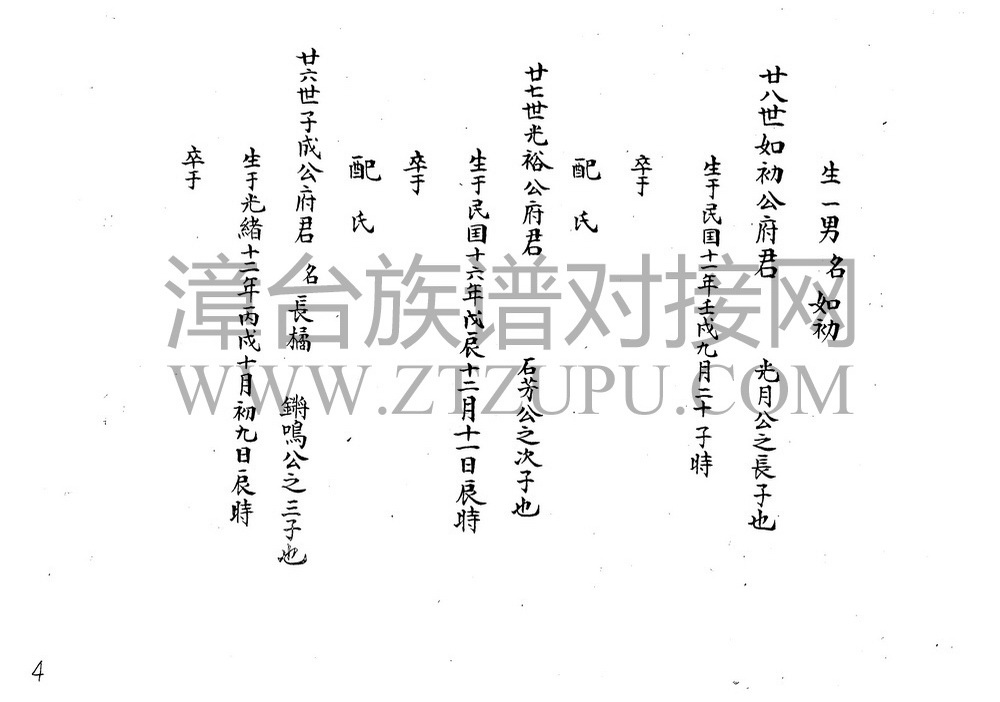 生一男名 如初
廿八世如初公府君 光月公之長子也
生于民国十一年壬戌九月二十子時
卒于
配 氏
廿七世光裕公府君 石芳公之次子也
生于民国十六年戊辰十二月十一日辰時
卒于
配 氏
廿六世子成公府君 名長橘 鏘鳴公之三子也
生于光緒十二年丙戌十月初九日辰時
卒于
漳台族谱对接网
WWW.ZTZUPU.COM
4